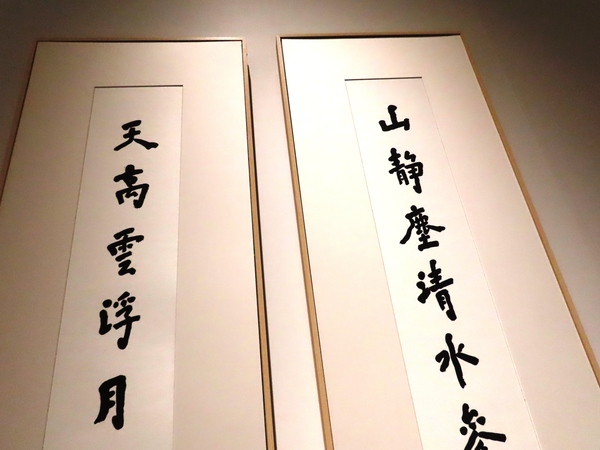 山靜塵清水參
天高雲浮月